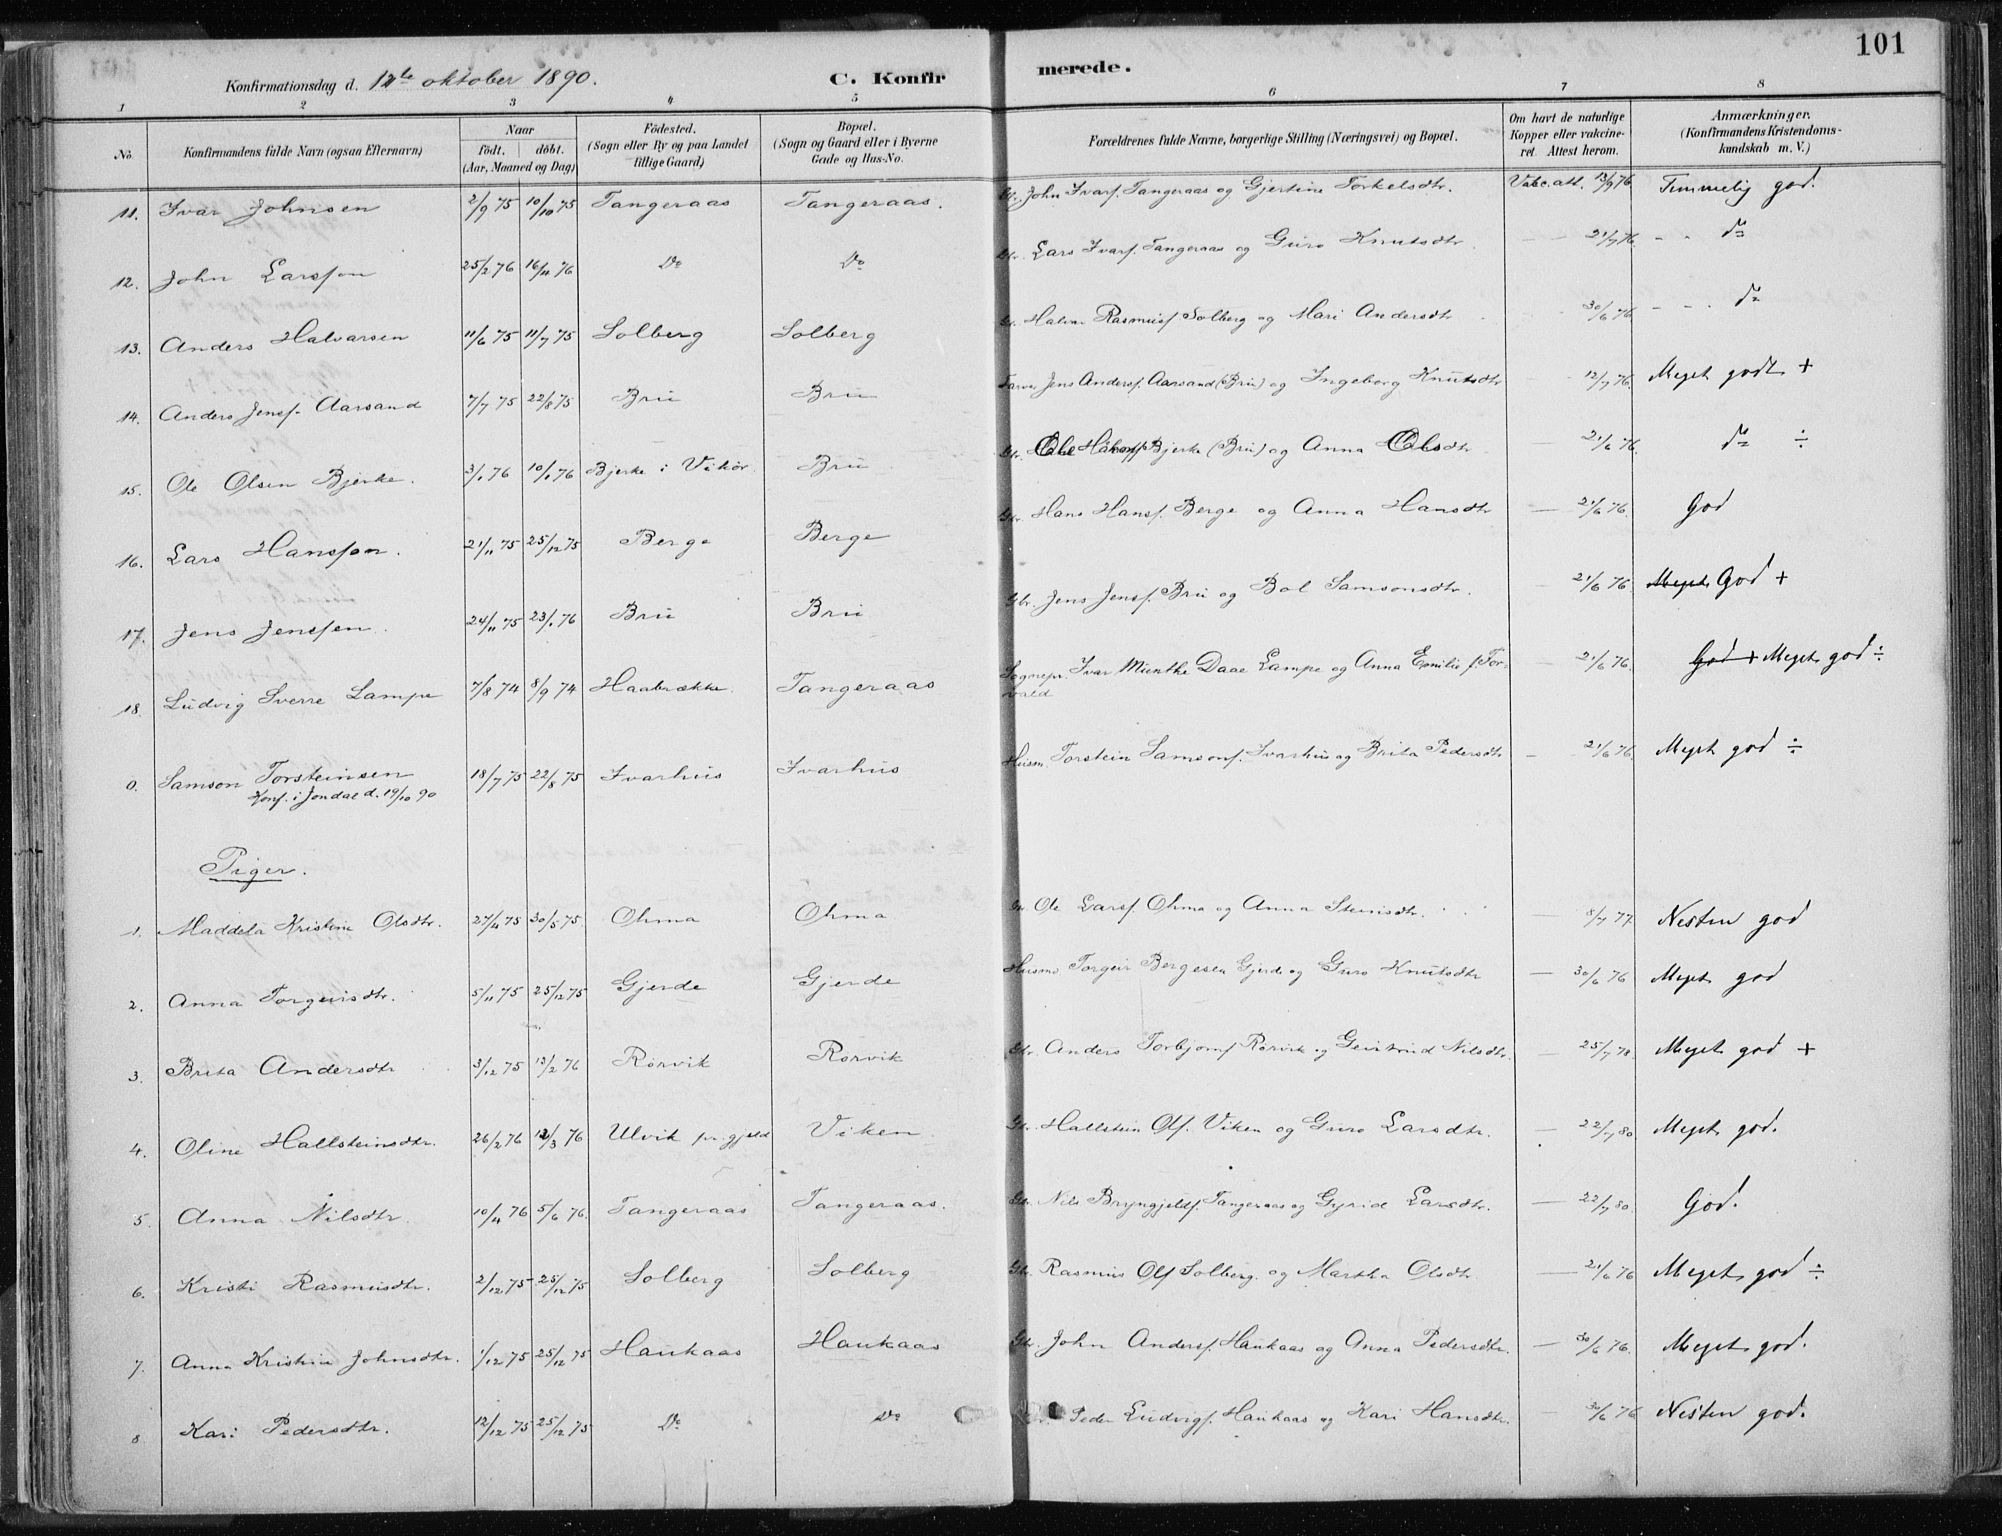 101
Konfirmationsdag d. 12te oktober 1890. C. Konfirmerede.
1 2 3 4 5 6 7 8
No. Konfirmandens fulde Navn (ogsaa Efternavn) Naar født. døbt. (Aar, Maaned og Dag) Fødested. (Sogn eller By og paa Landet tillige Gaard) Bopæl. (Sogn og Gaard eller i Byerne Gade og Hus-No. Forældrenes fulde Navne, borgerlige Stilling (Næringsvei) og Bopæl. Om havt de naturlige Kopper eller vakcineret. Attest herom. Anmærkninger. (Konfirmandens Kristendomskundskab m. V.)
11. Ivar Johnsen 2/9 75 10/10 75 Tangeraas Tangeraas. Gbr. John Ivarsf. Tangeraas og Gjertine Torkelsdtr. Vakc. att. 13/9 76 Temmelig god.
12. John Larsson 25/2 76 16/4 76 Do Do Gbr. Lars Ivarsf. Tangeraas og Guro Knutsdtr. — 21/7 76. - - do
13. Anders Halvarsen 11/6 75 11/7 75 Solberg Solberg Gbr. Halvar Rasmusf. Solberg og Mari Andersdtr 30/6 76. - - do
14. Anders Jensf. Aarsand 7/7 75 22/8 75 Brü Brü Farver Jens Andersf. Aarsand (Brü) og Ingeborg Knutsdtr 12/7 76. Meget godt +
15. Ole Olsen Bjerke. 3/1 76 10/1 76 Bjerke i Vikør Brü Gbr. Ole Håkonsf. Bjerke (Brü) og Anna Olsdtr — 21/6 76. do ÷
16. Lars Hansson. 21/11 75 25/12 75 Berge Berge Gbr. Hans Hansf. Berge og Anna Hansdtr — 21/6 76. God
17. Jens Jenssen. 24/11 75 23/1 76 Brü Brü Gbr. Jens Jensf. Brü og Bol Samsonsdtr. — 21/6 76. Meget God +
18. Ludvig Sverre Lampe 7/8 74 8/9 74 Haabrække. Tangeraas Sognepr. Ivar Mienthe Daae Lampe og Anna Emilie f. Tor- — 21/6 76. God + Meget god ÷
vald
0. Samson Torsteinsen 18/7 75 22/8 75 Ivarhus Ivarhus Husm. Torstein Samsonf. Ivarhus og Brita Pedersdtr — 21/6 76. Meget god ÷
Konf. i Jondal d. 19/10 90
Piger.
1. Maddela Kristine Olsdtr. 27/4 75 30/5 75 Ohma Ohma Gbr. Ole Larsf. Ohma og Anna Steinsdtr. — 8/7 77. Nesten god
2. Anna Torgeirsdtr. 5/11 75 25/12 75 Gjerde Gjerde Husm. Torgeir Bergesen Gjerde og Guro Knutsdtr — 30/6 76 Meget god
3. Brita Andersdtr 3/12 75 13/2 76 Rørvik Rørvik Gbr. Anders Torbjørnf. Rørvik og Geirtrud Nilsdtr. — 25/7 78 Meget god +
4. Oline Hallsteinsdtr. 26/2 76 12/3 76 Ulvik pr.gjeld Viken. Gbr. Hallstein Olf. Viken og Guro Larsdtr. — 22/7 80 Meget god.
5. Anna Nilsdtr. 10/4 76 5/6 76. Tangeraas Tangeraas. Gbr. Nils Bryngjeldf. Tangeraas og Gyrid Larsdtr. — 22/7 80. God.
6. Kristi Rasmusdtr. 2/12 75 25/12 75 Solberg Solberg Gbr. Rasmus Olf Solberg og Martha Olsdtr — 21/6 76 Meget god ÷
7. Anna Kristine Johnsdtr. 1/12 75 25/12 75 Haukaas Haukaas Gbr. John Andersf. Haukaas og Anna Pedersdtr. — 30/6 76. Meget god.
8. Kari Pedersdtr. 12/12 75 25/12 75 Do Do Peder Ludvigf. Haukaas og Kari Hansdtr. — 30/6 76 Nesten god.